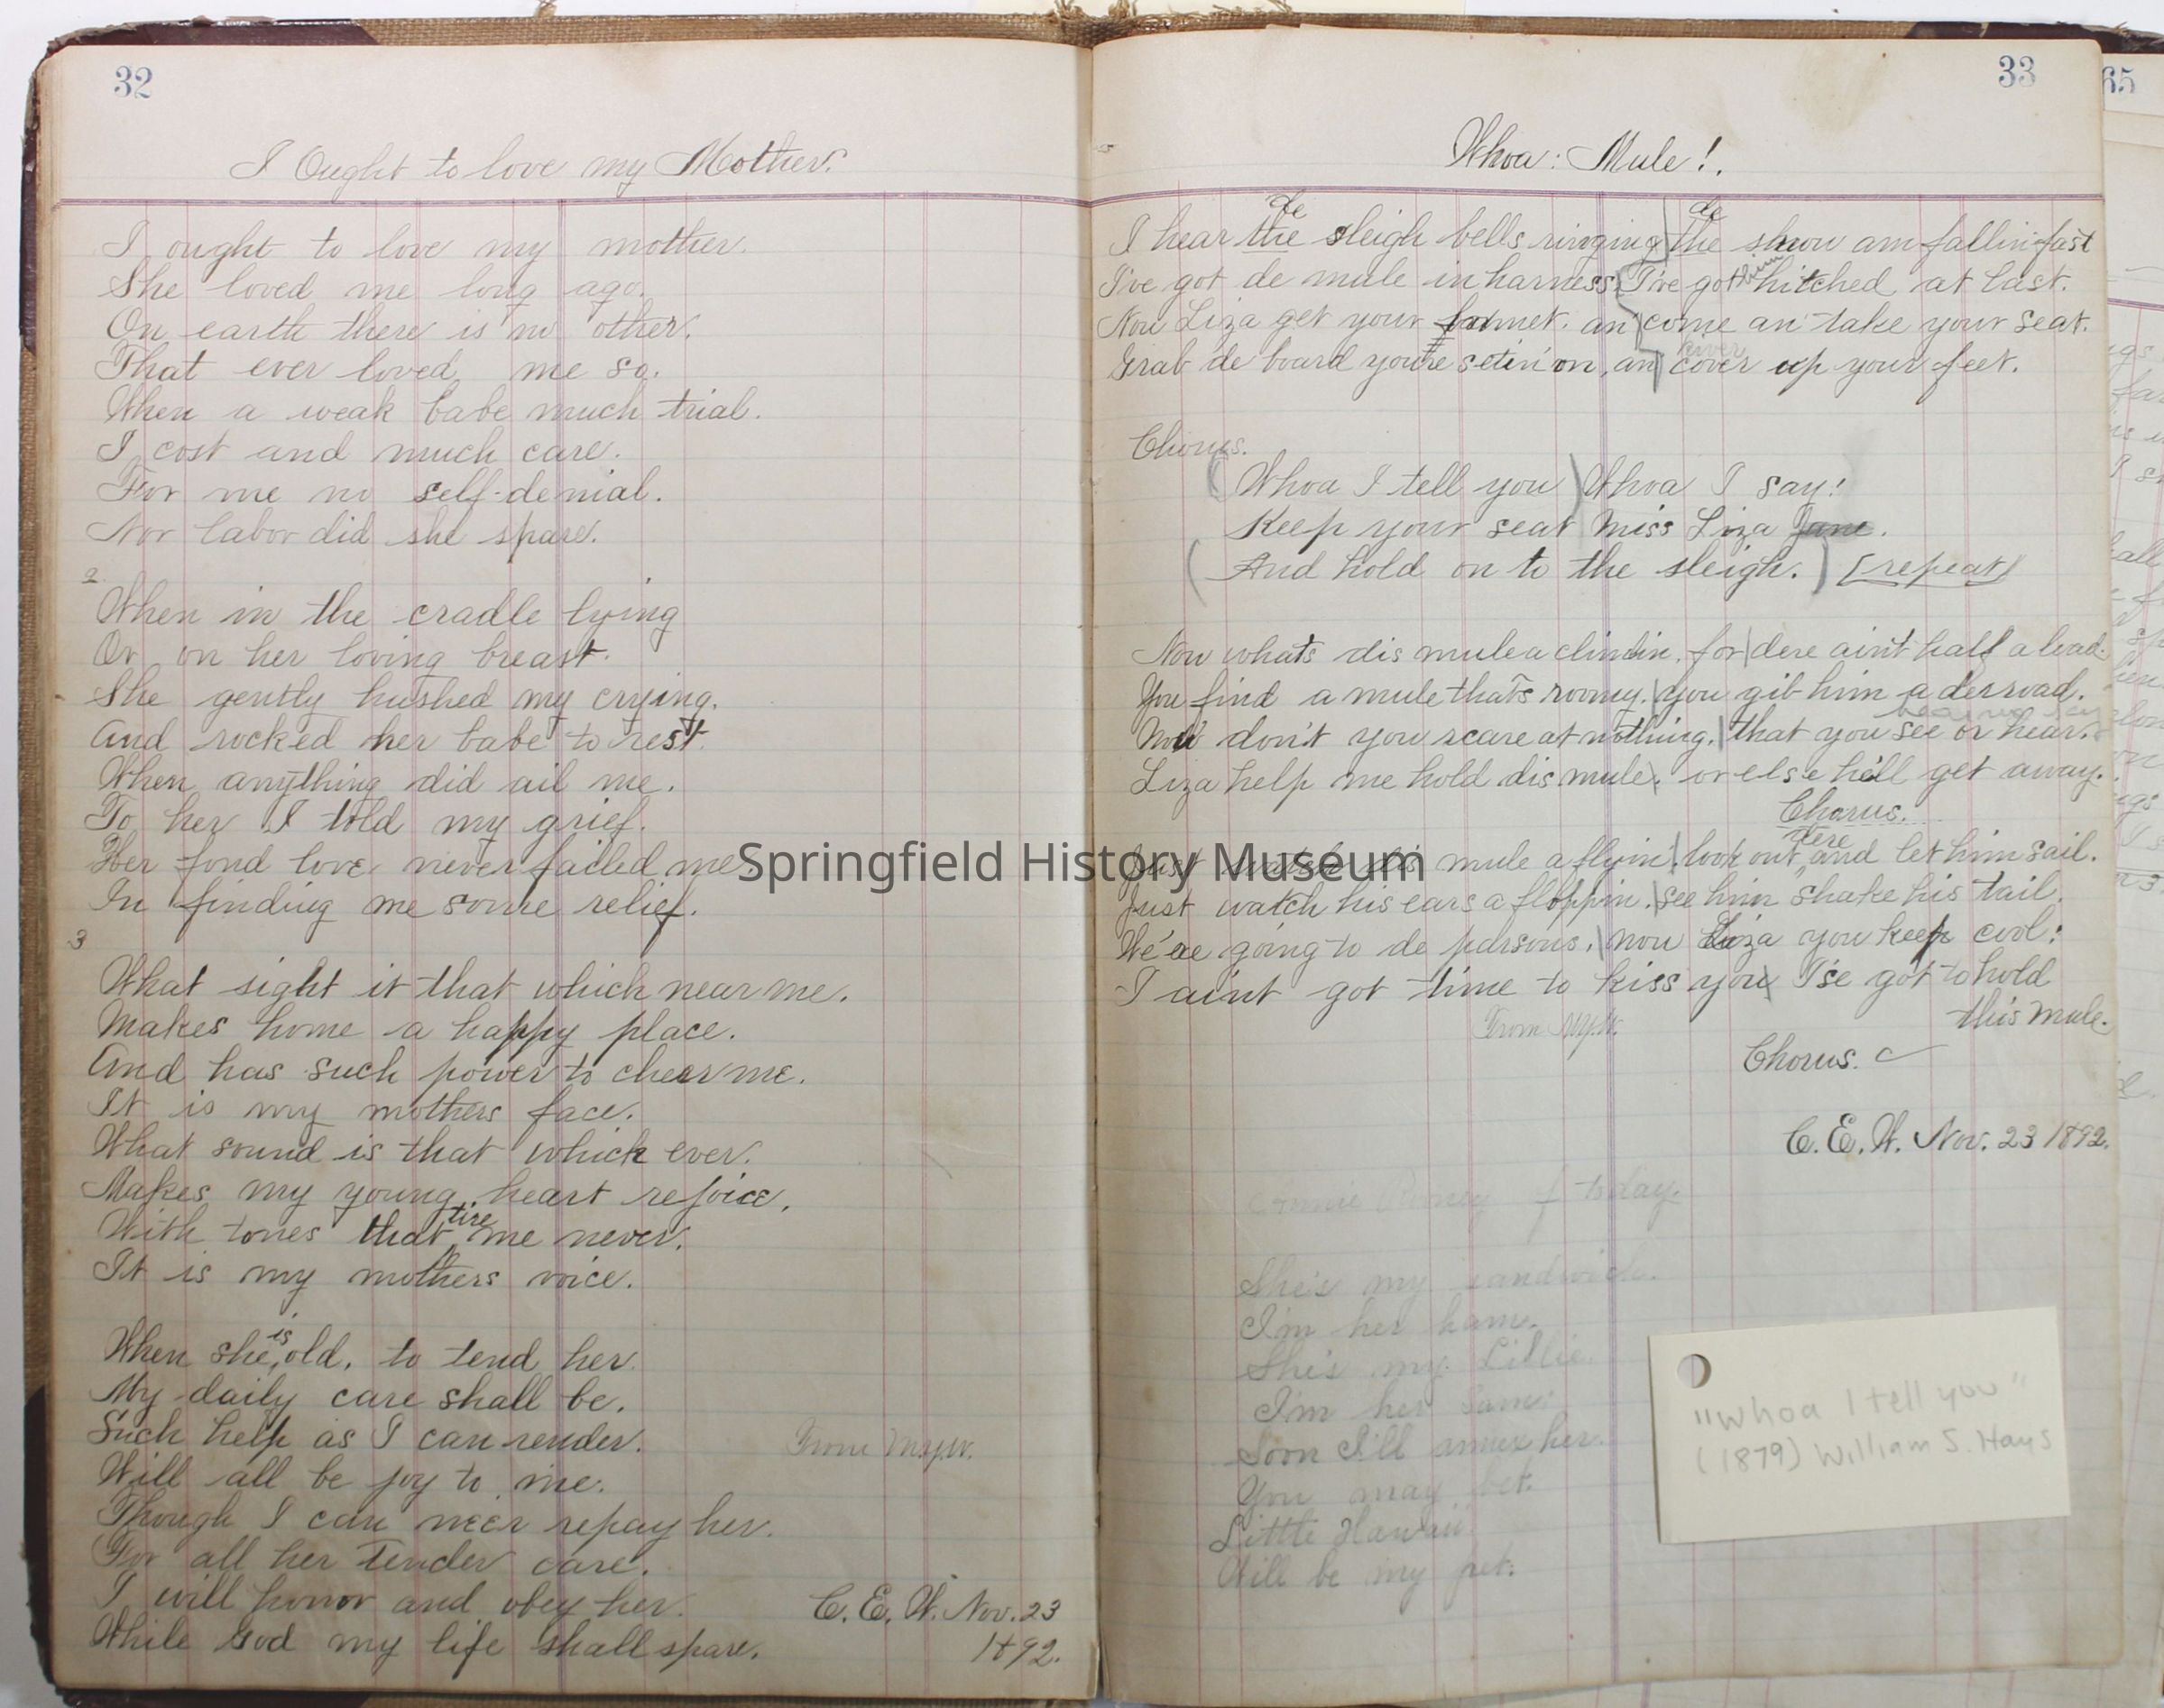 32
I Ought to love my Mother.
I ought to love my mother.
She loved me long ago.
On earth there is no other.
That ever loved me so.
When a weak babe much trial.
I cost and much care.
For me no self-denial.
Nor labor did she spare.
2
When in the cradle lying
Or on her loving breast.
She gently hushed my crying.
And rocked her babe to rest.
When anything did ail me.
To her I told my grief.
Her fond love never failed me.
In finding me some relief.
3
What sight it that which near me.
Makes home a happy place.
And has such power to cheer me.
It is my mothers face.
What sound is that which ever.
Makes my young heart rejoice.
With tones that tire me never.
It is my mothers voice.
When she is old, to tend her.
My daily care shall be.
Such help as I can render.
From M.y.W.
Will all be joy to me.
Though I can ne'er repay her.
For all her tender care.
I will honor and obey her.
While God my life shall spare.
C. E. W. Nov. 23
1892.
33
Whoa: Mule!.
de de
I hear the sleigh bells ringing the snow am fallin' fast
I've got de mule in harness I've got him hitched at last.
Now Liza get your bonnet. an' come an' take your seat.
kiver
Grab de board you're setin' on, an' cover up your feet.
Chorus.
Whoa I tell you Whoa I say!
Keep your seat Miss Liza Jane.
And hold on to the sleigh. [repeat]
Now whats dis mule a climbin. for dere ain't half a load.
You find a mule that's roomy. you gib him a de road.
Now don't you scare at nothing, that you see or hear.
Liza help me hold dis mule, or else he'll get away.
Chorus.
dere
Just watch dis mule a flyin'. look out, and let him sail.
Just watch his ears a floppin. see him shake his tail.
We'ee going to de parsons, now Liza you keep cool:
I aint got time to kiss you I'se got to hold
this mule.
From M.y.W.
Chorus.
C. E. W. Nov. 23 1892.
Annie Rooney of today.
She's my sandwich.
I'm her ham.
She's my Lillie.
I'm her Sam.
Soon I'll annex her.
You may bet.
Little Hawaii
Will be my pet.
"Whoa I tell you"
(1879) William S. Hays
65
Springfield History Museum